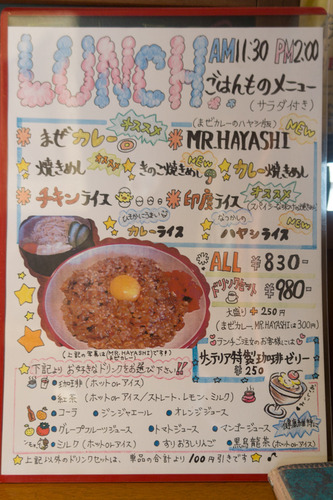 LUNCH AM11:30 PM2:00
ごはんものメニュー
(サラダ付き)
まぜカレー オススメ
(まぜカレーのハヤシ版) NEW
MR.HAYASHI
焼きめし オススメ
きのこ焼きめし NEW
カレー焼きめし
チキンライス
印度ライス オススメ
カレーライス
なつかしの
ハヤシライス NEW
ALL ¥830-
ドリンクセット ¥980-
大盛り +250円
(まぜカレー、MR.HAYASHIは300円)
ランチご注文のお客様には
サンテリア特製珈琲ゼリー
¥250
(上記の写真は(MR.HAYASHI)です)
まぜカレー
下記よりお好きなドリンクをお選び下さい!!
珈琲(ホットorアイス)
紅茶(ホットorアイス/ストレート、レモン、ミルク)
コーラ ジンジャエール オレンジジュース
グレープフルーツジュース トマトジュース マンゴージュース
ミルク(ホットorアイス) すりおろしりんご 黒烏龍茶(ホットorアイス)
上記以外のドリンクセットは、単品の合計より100円引きです